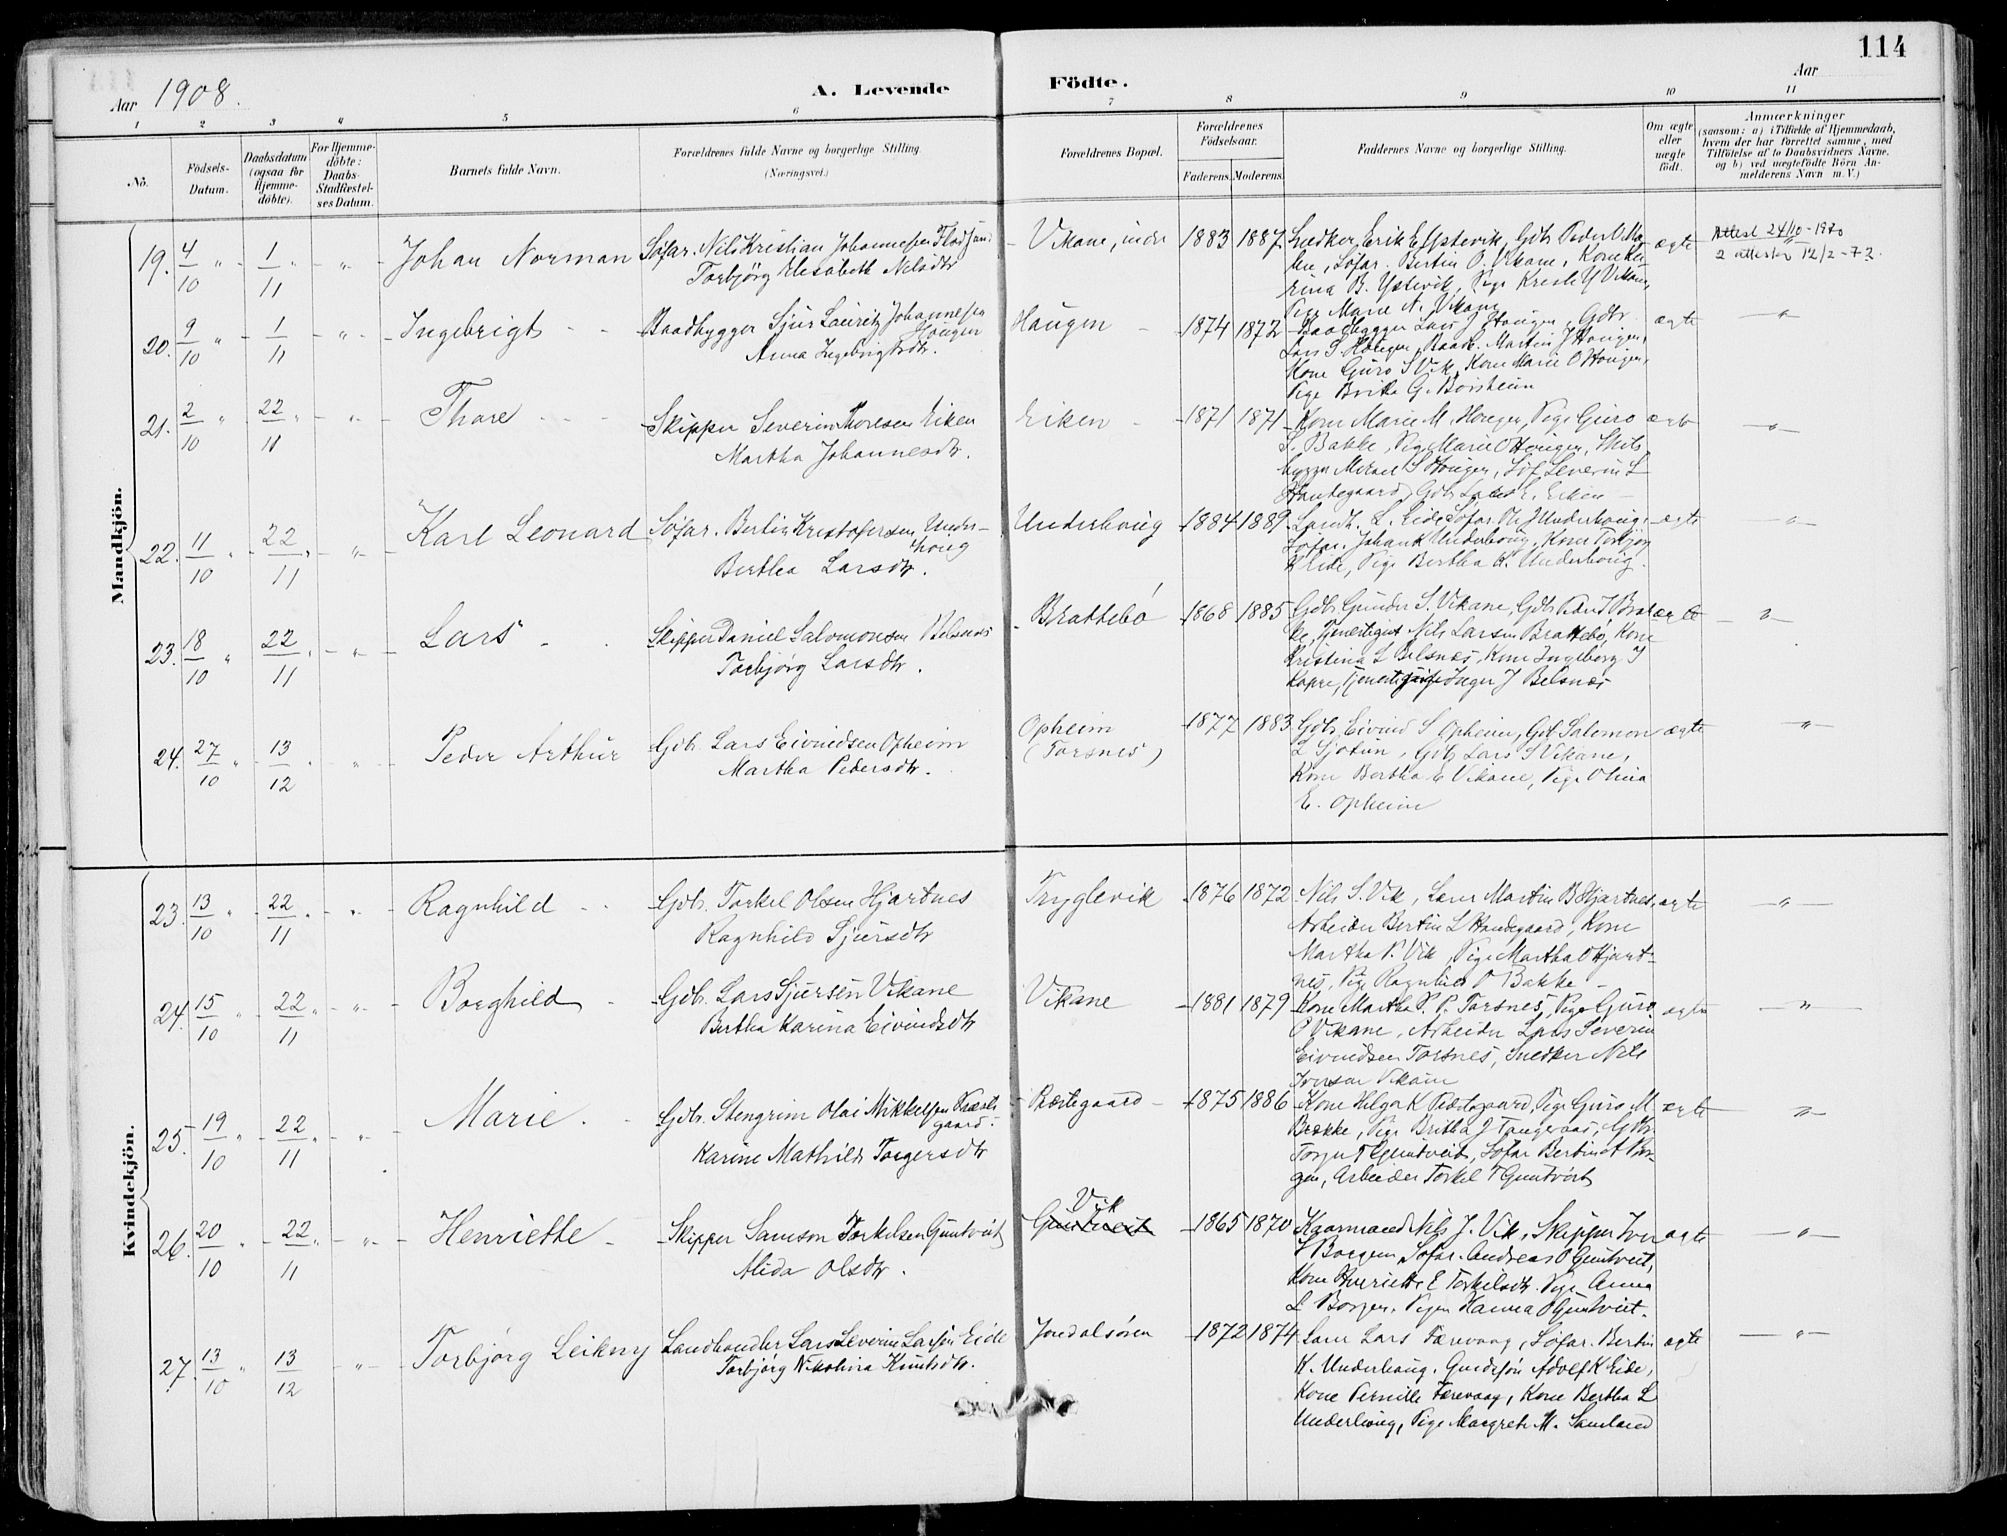 114
Aar 1908.
A. Levende Födte.
Aar
1 2 3 4 5 6 7 8 9 10 11
No.
Födsels-
Datum.
Daabsdatum
(ogsaa for
Hjemme-
döbte).
For Hjemme-
döbte:
Daabs-
Stadfæstel-
ses Datum.
Barnets fulde Navn.
Forældrenes fulde Navne og borgerlige Stilling.
(Næringsvei.)
Forældrenes Bopæl.
Forældrenes
Födselsaar.
Faderens. Moderens.
Faddernes Navne og borgerlige Stilling.
Om ægte
eller
uægte
födt.
Anmærkninger
(saasom: a) i Tilfælde af Hjemmedaab,
hvem der har forrettet samme, med
Tilföielse af to Daabsvidners Navne.
og b) ved uægtefödte Börn An-
melderens Navn m. V.)
Mandkjön.
19. 4/10 " 1/11 " - " - Johan Norman
Söfar. Nils Kristian Johannessen
Torbjörg Elisabeth Nilsdtr
Vikane, indre 1883 1887
Snedker Erik E Ystevik, Gdb. Peder V.
Söfar. Bertin O. Vikane, Kone
B. Ystevik, Pige
Pige Marie A. Vikane
ægte
Attest 24/10-1920
2 attester 12/2-72.
20. 9/10 " 1/11 " - " - Ingebrigt
Baadbygger Sjur Lauritz Johannessen
Haugen
Anna Ingebrigtsdtr.
Haugen 1874 1872
Baadbygger Lars J Haugen, Gdbr.
Lars S Haugen, Baadb. Martin J Haugen,
Kone Guro S Vik, Kone Marie O Haugen,
Pige Brita G. Börsheim
ægte - " -
21. 2/10 " 22/11 - " - Thore
Skipper Severin Thoresen Eiken
Martha Johannesdtr.
Eiken 1871 1871
Kone Marie M. Haugen, Pige Guro
S. Bakke, Pige Marie O Haugen, Skibs-
bygger Mikael S Haugen, Söf Severin L
Handegaard, Gdb. Lars E. Eiken
ægte - " -
22. 11/10 " 22/11 " - " - Karl Leonard
Söfar. Bertin Kristofersen Under-
houg
Bertha Larsdtr.
Underhoug 1884 1889
Landh. L. Eide, Söfar. J Underhoug,
Söfar. Johan K Underhoug, Kone Torbjör
K Eide, Pige Bertha K. Underhoug.
ægte - " -
23. 18/10 " 22/11 " - " - Lars
Skipper Daniel Salomonsen Belsnæs
Torbjørg Larsdtr.
Brattebö 1868 1885
Gdb. Gunder S. Vikane, Gdb.
Tjenestegut Nils Larsen Brattebö, Kone
Kristina L Belsnæs, Kone Ingeborg J
Kopre, Inger J Belsnæs
ægte - " -
24. 27/10 " 13/12 " - " - Peder Arthur
Gdb. Lars Eivindsen Opheim
Martha Pedersdtr.
Opheim
(Torsnes)
1877 1883
Gdb. Eivind S Opheim, Gdb Salomon
L Sjotun, Gdb. Lars S Vikane,
Kone Bertha E Vikane, Pige Olina
E. Opheim
ægte - " -
Kvindekjön.
23. 13/10 " 22/11 " - " - Ragnhild
Gdb. Torkel Olsen Hjartnes
Ragnhild Sjursdtr
Tryglevik 1876 1872
Nils S. Vik, Martin B Hjartnes,
Arbeider Bertin L Handegaard, Kone
Martha P. Vik, Pige Martha O Hjart-
nes, Pige Ragnhild P Bakke
ægte - " -
24. 15/10 " 22/11 " - " - Borghild
Gdb. Lars Sjursen Vikane
Bertha Karina Eivindsdtr
Vikane 1881 1879
Kone Martha P. P. Torsnes, Pige Guro
P Vikane, Arbeider Lars Severin
Eivindsen Torsnes, Snedker Nils
Iversen Vikane
ægte - " -
25. 19/10 " 22/11 " - " - Marie
Gdb. Stengrim Olai Mikkelsen Præste-
gaard.
Karine Mathilde Torgersdtr
Præstegaard 1875 1886
Kone Helga K Præstegaard, Pige Guro M
Bække, Pige Britha J Tangeraas, Gdbr.
Torger T Guntveit, Söfar Bertin A Bor-
gen, Arbeider Torkel T Guntveit
ægte - " -
26. 20/10 " 22/11 " - " - Henriette
Skipper Samson Torkelsen Guntveit
Alida Olsdtr.
Vik
Guntveit
1865 1870
Kaarmand Nils J. Vik, Skipper Iver
S Borgen, Söfar. Andreas O Guntveit,
Kone Henriette E Torkilsdtr. Pige Anna
L Borgen. Pigen Hanna O Guntveit.
ægte - " -
27. 13/10 13/12 - " - Torbjörg Leikny
Landhandler Lars Severin Larsen Eide
Torbjörg Nikolina Knutsdtr.
Jondalsören 1872 1874
Lars Færevaag, Söfar. Bertin
K. Underhaug, Adolf K Eide,
Kone Pernille Færevaag, Kone Bertha L
Underhoug, Pige Margrete M. Samland
ægte - " -